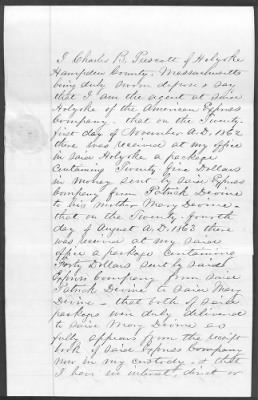 I Charles B. Prescott of Holyoke
Hampden County. Massachusetts
being duly sworn depose & say
that I am the agent at said
Holyoke of the American Express
Company. that on the Twenty-
first day of November A.D. 1862
there was received at my office
in said Holyoke a package
containing Twenty five Dollars
in money sent by said Express
Company from Patrick Devine
to his mother Mary Devine -
that on the Twenty-fourth
day of August A.D. 1863 there
was received at my said
office a package containing
Forty Dollars sent by said
Express Company from said
Patrick Devine to said Mary
Devine - that both of said
packages were duly delivered
to said Mary Devine as
fully appears from the receipt
book of said Express Company
now in my custody. & that
I have no interest, direct or